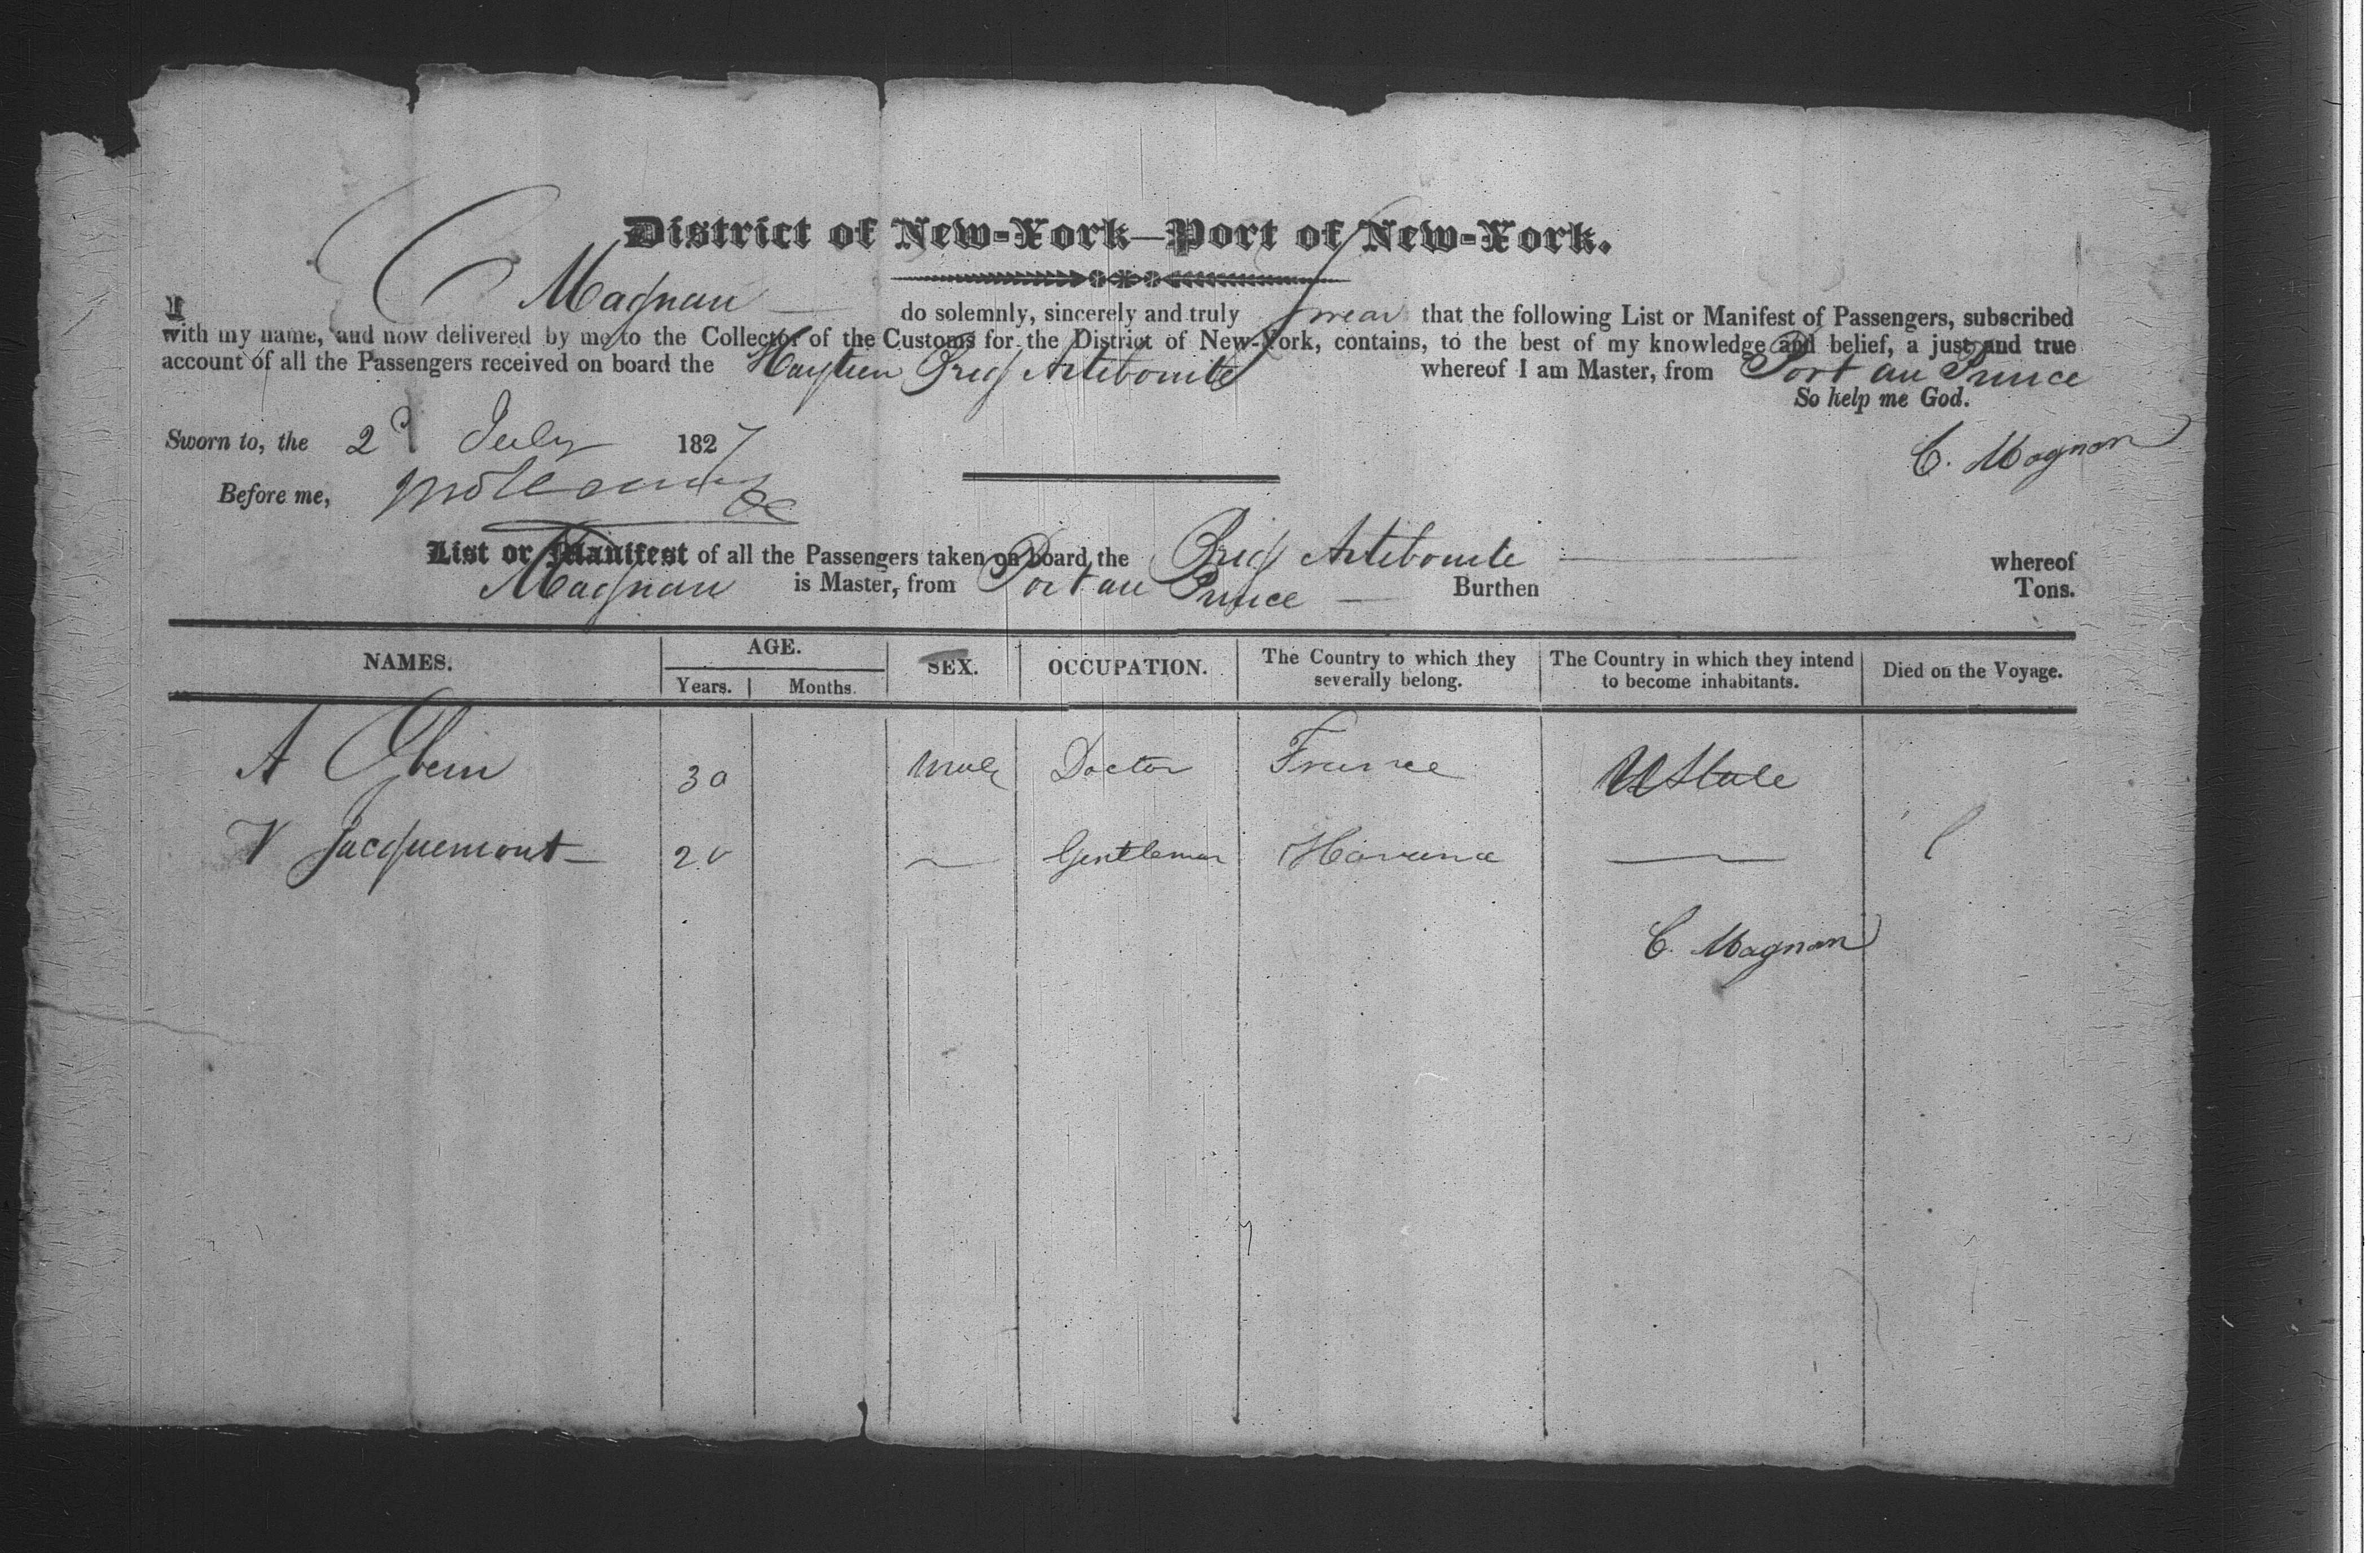 District of New-York—Port of New-York.
I C Magnan do solemnly, sincerely and truly swear that the following List or Manifest of Passengers, subscribed
with my name, and now delivered by me to the Collector of the Customs for the District of New-York, contains, to the best of my knowledge and belief, a just and true
account of all the Passengers received on board the Haytien Brig Artibonite whereof I am Master, from Port au Prince
So help me God.
Sworn to, the 2d July 1827
C. Magnan
Before me,
List or Manifest of all the Passengers taken on board the Brig Artibonite whereof
Magnan is Master, from Port au Prince — Burthen Tons.
NAMES. AGE. SEX. OCCUPATION. The Country to which they severally belong. The Country in which they intend to become inhabitants. Died on the Voyage.
Years. Months.
A 30 Male Doctor France U State
V Jacquemont 20 Gentleman Havana
C. Magnan